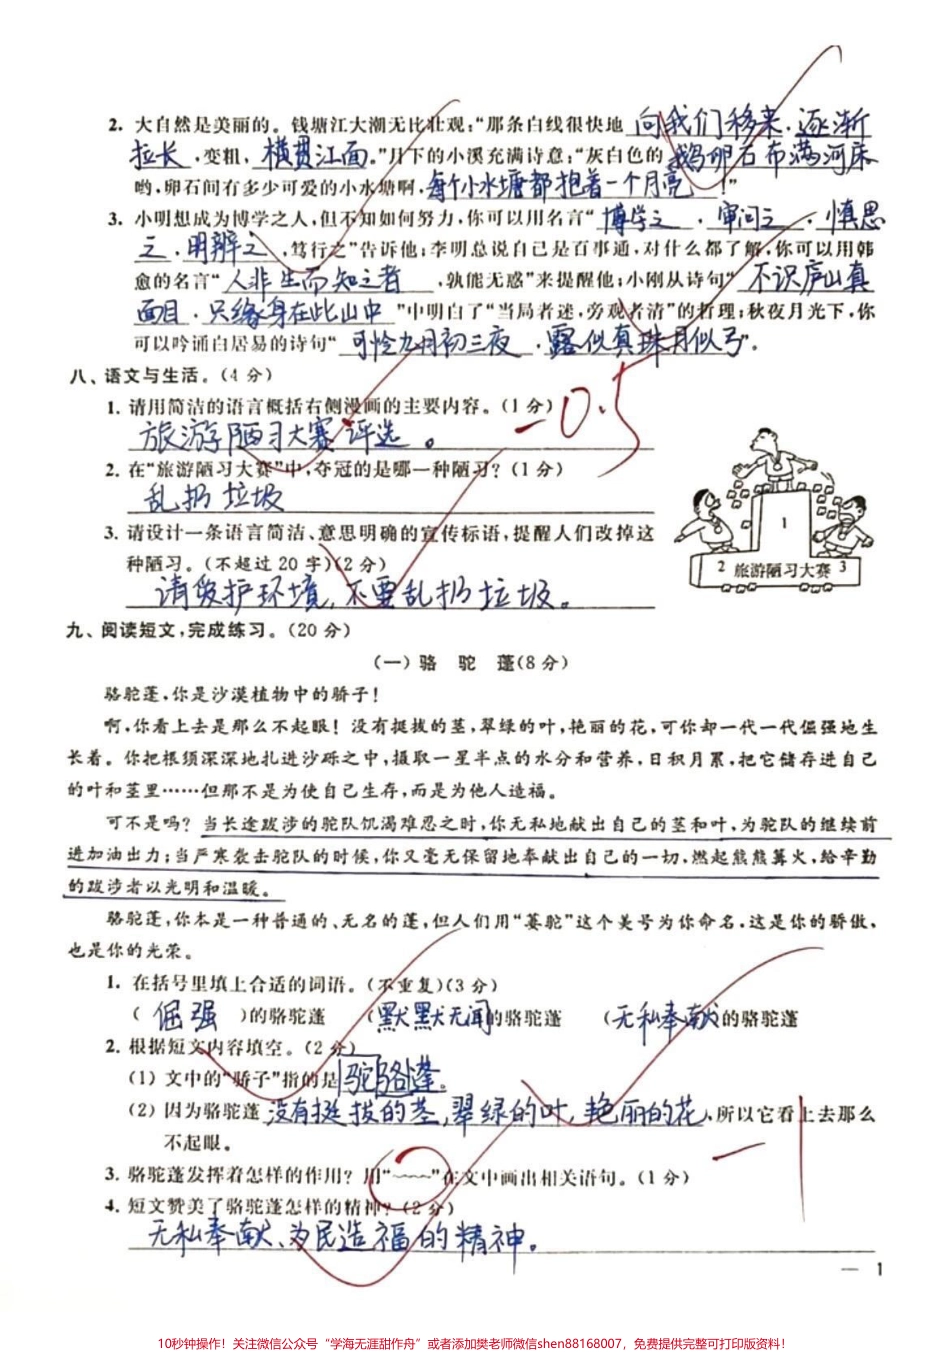 2. 大自然是美丽的。钱塘江大潮无比壮观:“那条白线很快地 向我们移来.逐渐
拉长 ,变粗, 横贯江面。”月下的小溪充满诗意:“灰白色的 鹅卵石布满河床
哟,卵石间有多少可爱的小水塘啊,每个小水塘都抱着一个月亮 !”
3. 小明想成为博学之人,但不知如何努力,你可以用名言“ 博学之 , 审问之 , 慎思
之 ,明辨之 ,笃行之”告诉他;李明总说自己是百事通,对什么都了解,你可以用韩
愈的名言“ 人非生而知之者 ,孰能无惑”来提醒他;小刚从诗句“ 不识庐山真
面目 ,只缘身在此山中 ”中明白了“当局者迷,旁观者清”的哲理;秋夜月光下,你
可以吟诵白居易的诗句“ 可怜九月初三夜 ,露似真珠月似弓”。
八、语文与生活。(4 分)
1. 请用简洁的语言概括右侧漫画的主要内容。(1 分)
-0.5
旅游陋习大赛评选 。
2. 在“旅游陋习大赛”中,夺冠的是哪一种陋习?(1 分)
乱扔垃圾
1
2 旅游陋习大赛 3
3. 请设计一条语言简洁、意思明确的宣传标语,提醒人们改掉这
种陋习。(不超过 20 字)(2 分)
请爱护环境,不要乱扔垃圾。
九、阅读短文,完成练习。(20 分)
(一)骆 驼 蓬(8 分)
骆驼蓬,你是沙漠植物中的骄子!
啊,你看上去是那么不起眼!没有挺拔的茎,翠绿的叶,艳丽的花,可你却一代一代倔强地生
长着。你把根须深深地扎进沙砾之中,摄取一星半点的水分和营养,日积月累,把它储存进自己
的叶和茎里……但那不是为使自己生存,而是为他人造福。
可不是吗?当长途跋涉的驼队饥渴难忍之时,你无私地献出自己的茎和叶,为驼队的继续前
进加油出力;当严寒袭击驼队的时候,你又毫无保留地奉献出自己的一切,燃起熊熊篝火,给辛勤
的跋涉者以光明和温暖。
骆驼蓬,你本是一种普通的、无名的蓬,但人们用“蒌驼”这个美号为你命名,这是你的骄傲,
也是你的光荣。
1. 在括号里填上合适的词语。(不重复)(3 分)
( 倔强 )的骆驼蓬 (默默无闻)的骆驼蓬 (无私奉献)的骆驼蓬
2. 根据短文内容填空。(2 分)
(1) 文中的“骄子”指的是驼骆蓬。
(2) 因为骆驼蓬 没有挺拔的茎,翠绿的叶,艳丽的花 ,所以它看上去那么
不起眼。
-1
3. 骆驼蓬发挥着怎样的作用?用“﹏﹏”在文中画出相关语句。(1 分)
4. 短文赞美了骆驼蓬怎样的精神?(2 分)
无私奉献、为民造福的精神。
— 1
10秒钟操作!关注微信公众号“学海无涯甜作舟”或者添加樊老师微信shen88168007,免费提供完整可打印版资料!